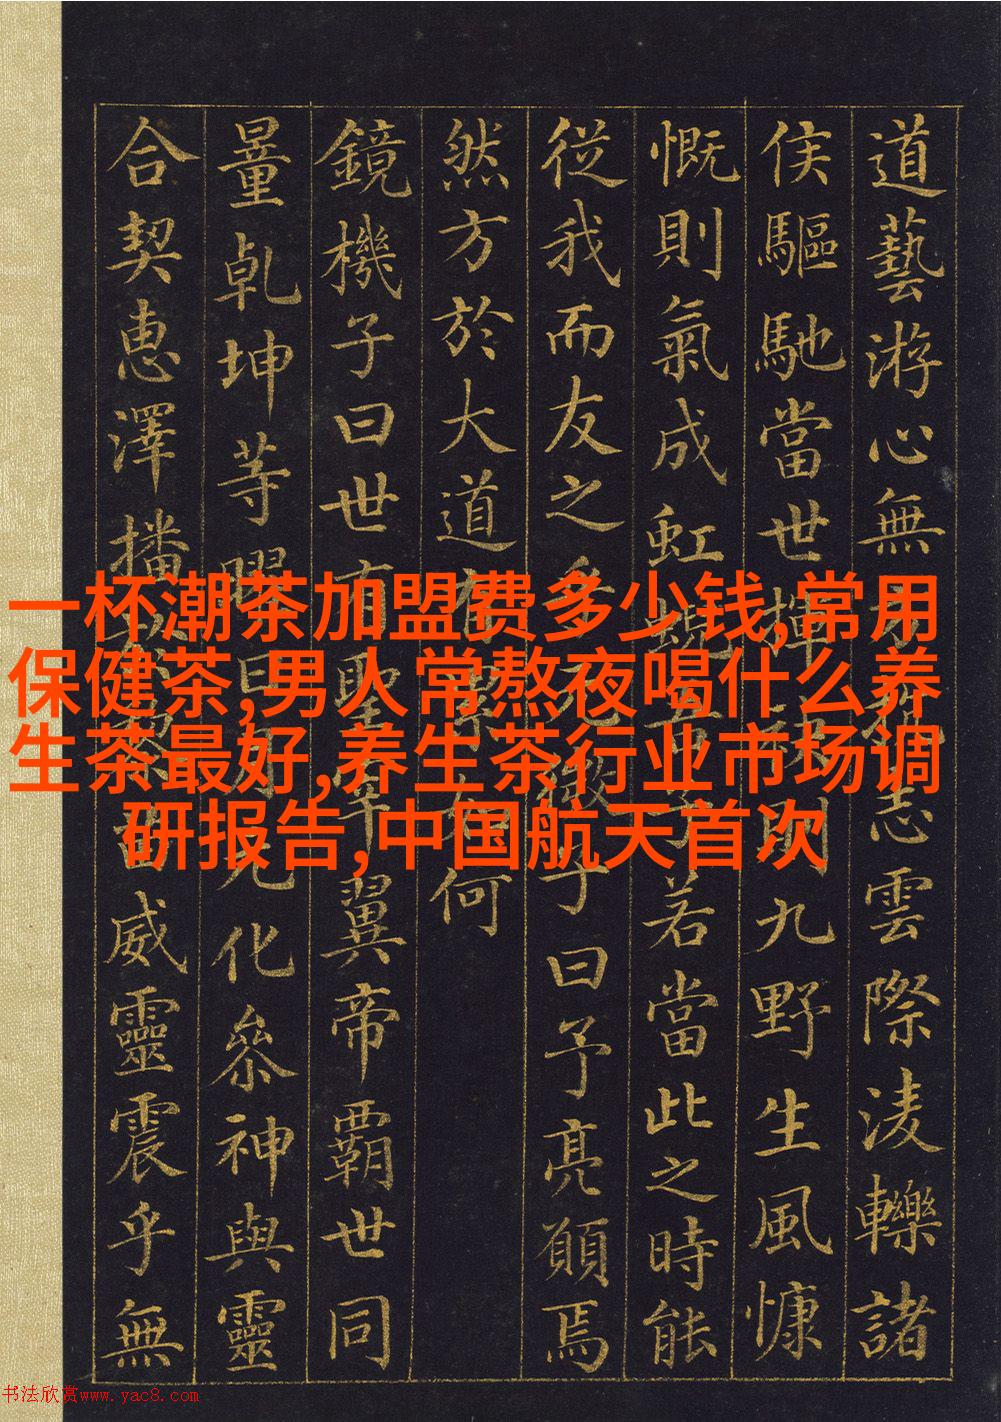 道藝游心無志雲際淩轢諸
侯驅馳當世揮則九野生風慷
慨則氣成虹蜺若當此之時能
從我而友之子曰予亮願焉
然方於大道有何
鏡機子曰世有聖宰翼帝霸世同
量乾坤等曜日月玄化參神與靈
合契惠澤播威靈震乎無
一杯潮茶加盟费多少钱,常用
保健茶,男人常熬夜喝什么养
生茶最好,养生茶行业市场调
研报告,中国航天首次
书法欣赏www.yac8.com